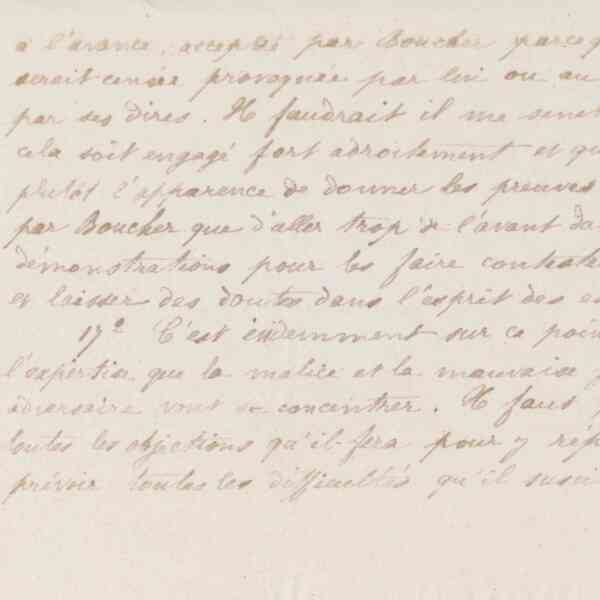 à l'avance, accepté par Boucher parceq
serait censée provoquée par lui ou au
par ses dires. Il faudrait il me sem
cela soit engagé fort adroitement et qu
plutôt l'apparence de donner les preuves
par Boucher que d'aller trop de l'avant da
démonstrations pour les faire constate
et laisser des doutes dans l'esprit des e
17° C'est évidemment sur ce poin
l'expertise que la malice et la mauvaise
adversaire vont se concentrer. Il faut
toutes les objections qu'il fera pour y rép
prévoir toutes les difficultés qu'il susci